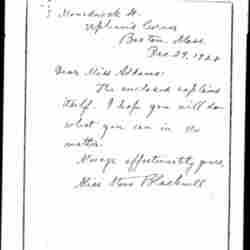 3 Monadnock St.
Uphams Corner
Boston, Mass.
Dec. 29, 1924
Dear Miss Addams:
The enclosed explains
itself. I hope you will do
what you can in the
matter.
Always affectionately yours,
Alice Stone Blackwell